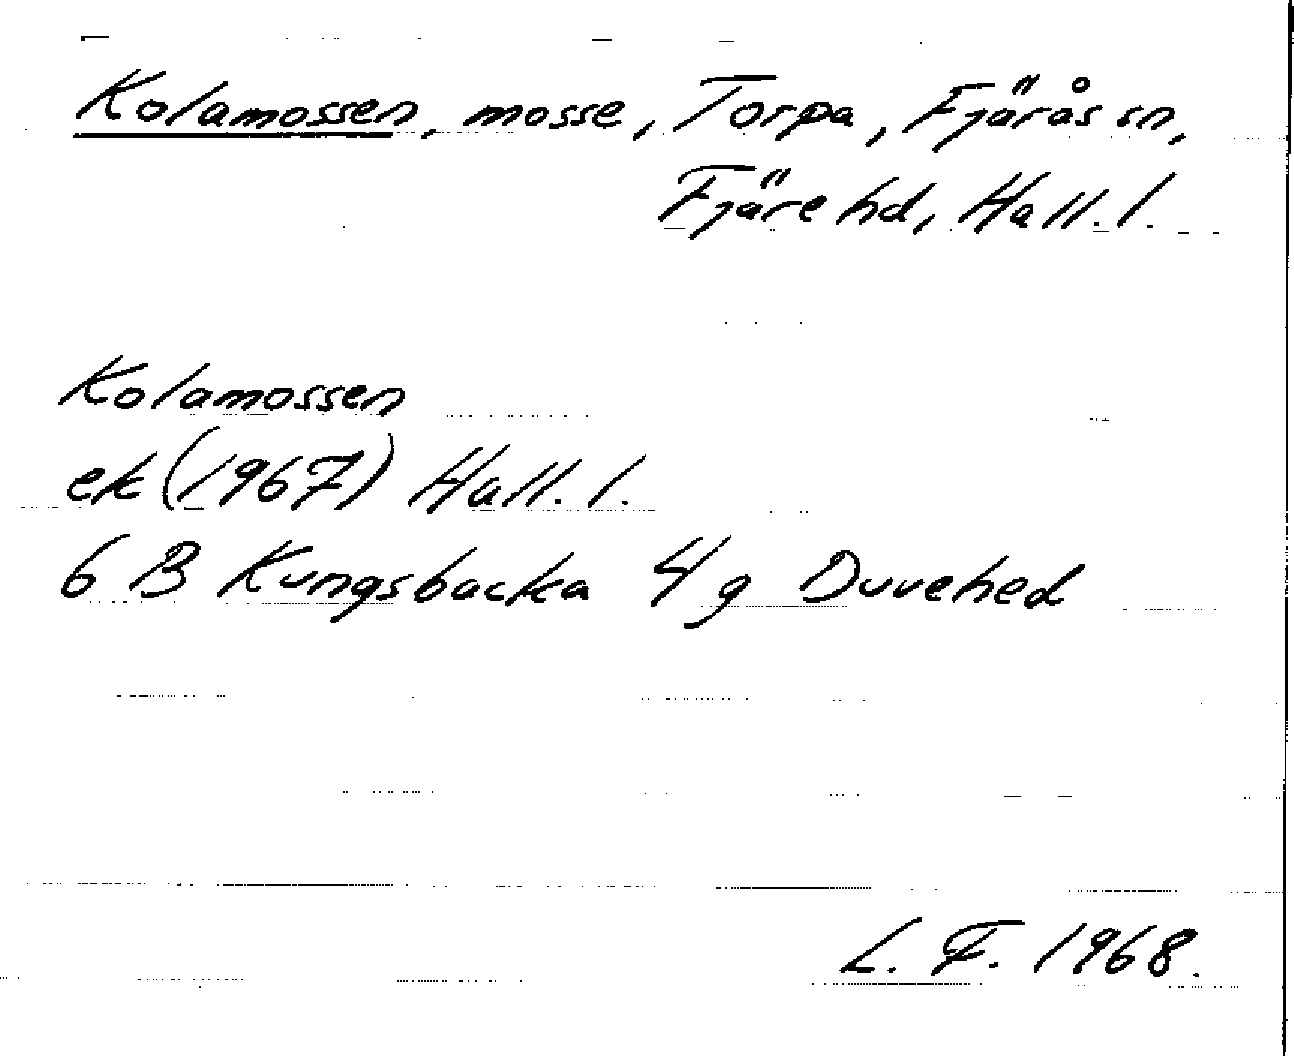 Kolamossen, mosse, Torpa, Fjärås sn,
Fjäre hd, Hall. l.
Kolamossen
ek (1967) Hall. l.
6 B Kungsbacka 4 g Duvehed
L. F. 1968.